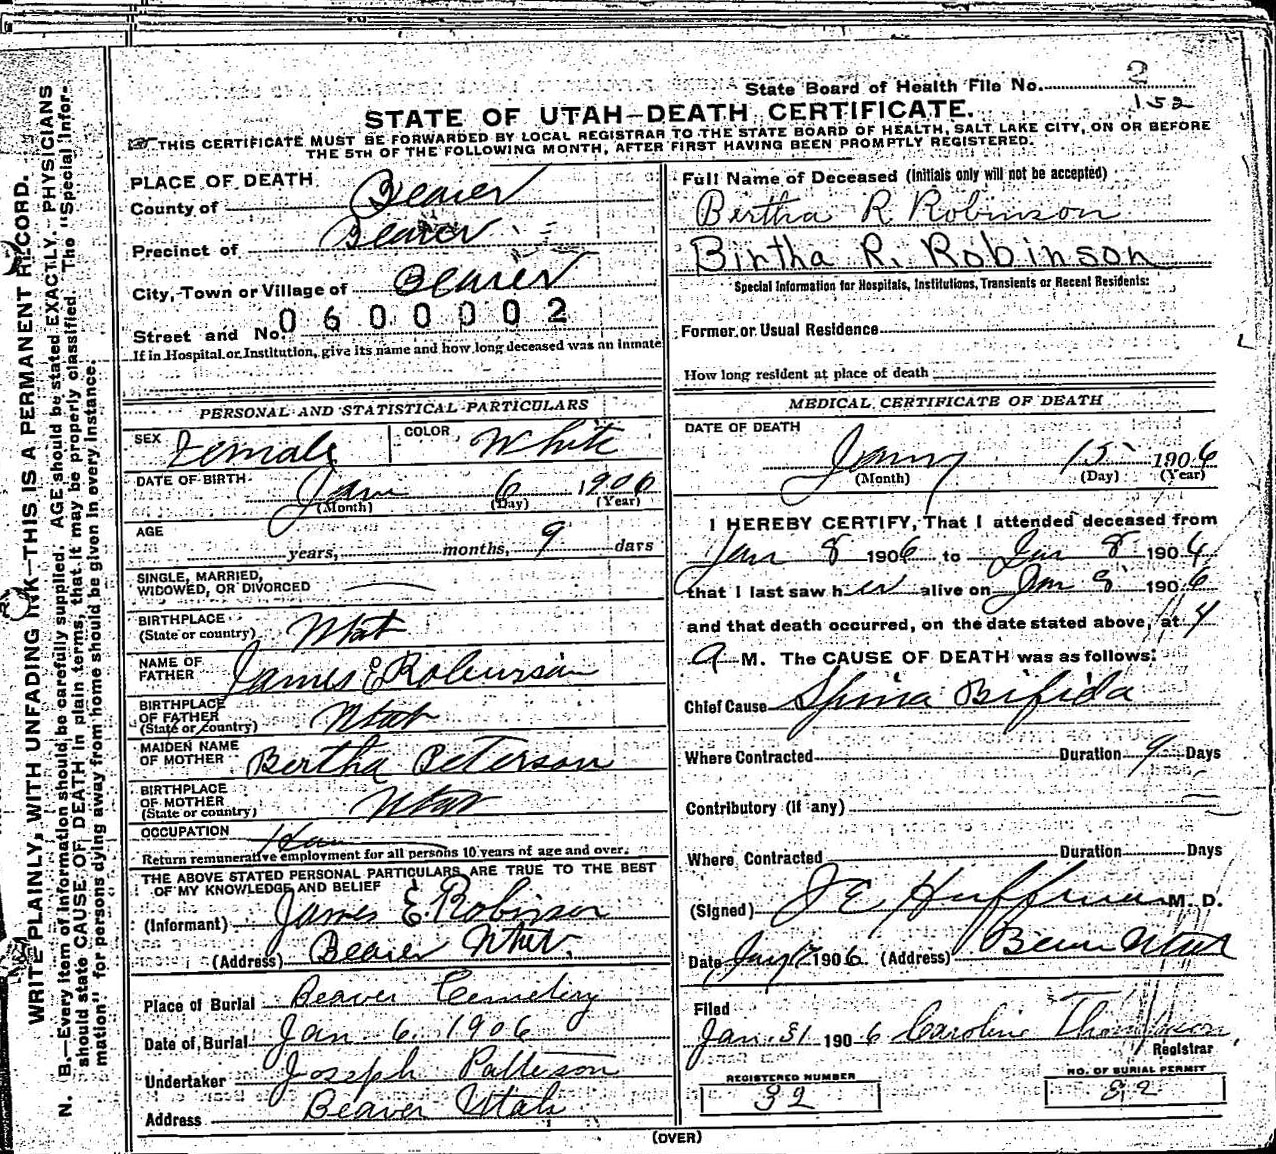 State Board of Health File No. 2
152
STATE OF UTAH—DEATH CERTIFICATE.
THIS CERTIFICATE MUST BE FORWARDED BY LOCAL REGISTRAR TO THE STATE BOARD OF HEALTH, SALT LAKE CITY, ON OR BEFORE
THE 5TH OF THE FOLLOWING MONTH, AFTER FIRST HAVING BEEN PROMPTLY REGISTERED.
WRITE PLAINLY, WITH UNFADING INK—THIS IS A PERMANENT RECORD.
N. B.—Every item of information should be carefully supplied. AGE should be stated EXACTLY. PHYSICIANS
should state CAUSE OF DEATH in plain terms, that it may be properly classified. The "Special Infor-
mation" for persons dying away from home should be given in every instance.
PLACE OF DEATH
County of Beaver
Precinct of Beaver
City, Town or Village of Beaver
Street and No. 0600002
If in Hospital or Institution, give its name and how long deceased was an inmate
PERSONAL AND STATISTICAL PARTICULARS
SEX Female COLOR White
DATE OF BIRTH Jan 6 1906
(Month) (Day) (Year)
AGE
years, months, 9 days
SINGLE, MARRIED,
WIDOWED, OR DIVORCED
BIRTHPLACE
(State or country) Utah
NAME OF
FATHER James E Robinson
BIRTHPLACE
OF FATHER
(State or country) Utah
MAIDEN NAME
OF MOTHER Bertha Peterson
BIRTHPLACE
OF MOTHER
(State or country) Utah
OCCUPATION
Return remunerative employment for all persons 10 years of age and over.
THE ABOVE STATED PERSONAL PARTICULARS ARE TRUE TO THE BEST
OF MY KNOWLEDGE AND BELIEF
(Informant) James E. Robinson
(Address) Beaver Utah
Place of Burial Beaver Cemetery
Date of Burial Jan 6 1906
Undertaker Joseph Patterson
Address Beaver Utah
Full Name of Deceased (Initials only will not be accepted)
Bertha R Robinson
Birtha R. Robinson
Special Information for Hospitals, Institutions, Transients or Recent Residents:
Former or Usual Residence
How long resident at place of death
MEDICAL CERTIFICATE OF DEATH
DATE OF DEATH
Jany 15 1906
(Month) (Day) (Year)
I HEREBY CERTIFY, That I attended deceased from
Jan 8 1906 to Jan 8 1906
that I last saw her alive on Jan 8 1906
and that death occurred, on the date stated above, at 4
A M. The CAUSE OF DEATH was as follows:
Chief Cause Spina Bifida
Where Contracted Duration 9 Days
Contributory (if any)
Where Contracted Duration Days
(Signed) J E Huffman M. D.
Date Jany 1906 (Address) Beaver Utah
Filed
Jan 31 1906 Caroline Thompson
Registrar
REGISTERED NUMBER
32
NO. OF BURIAL PERMIT
82
(OVER)